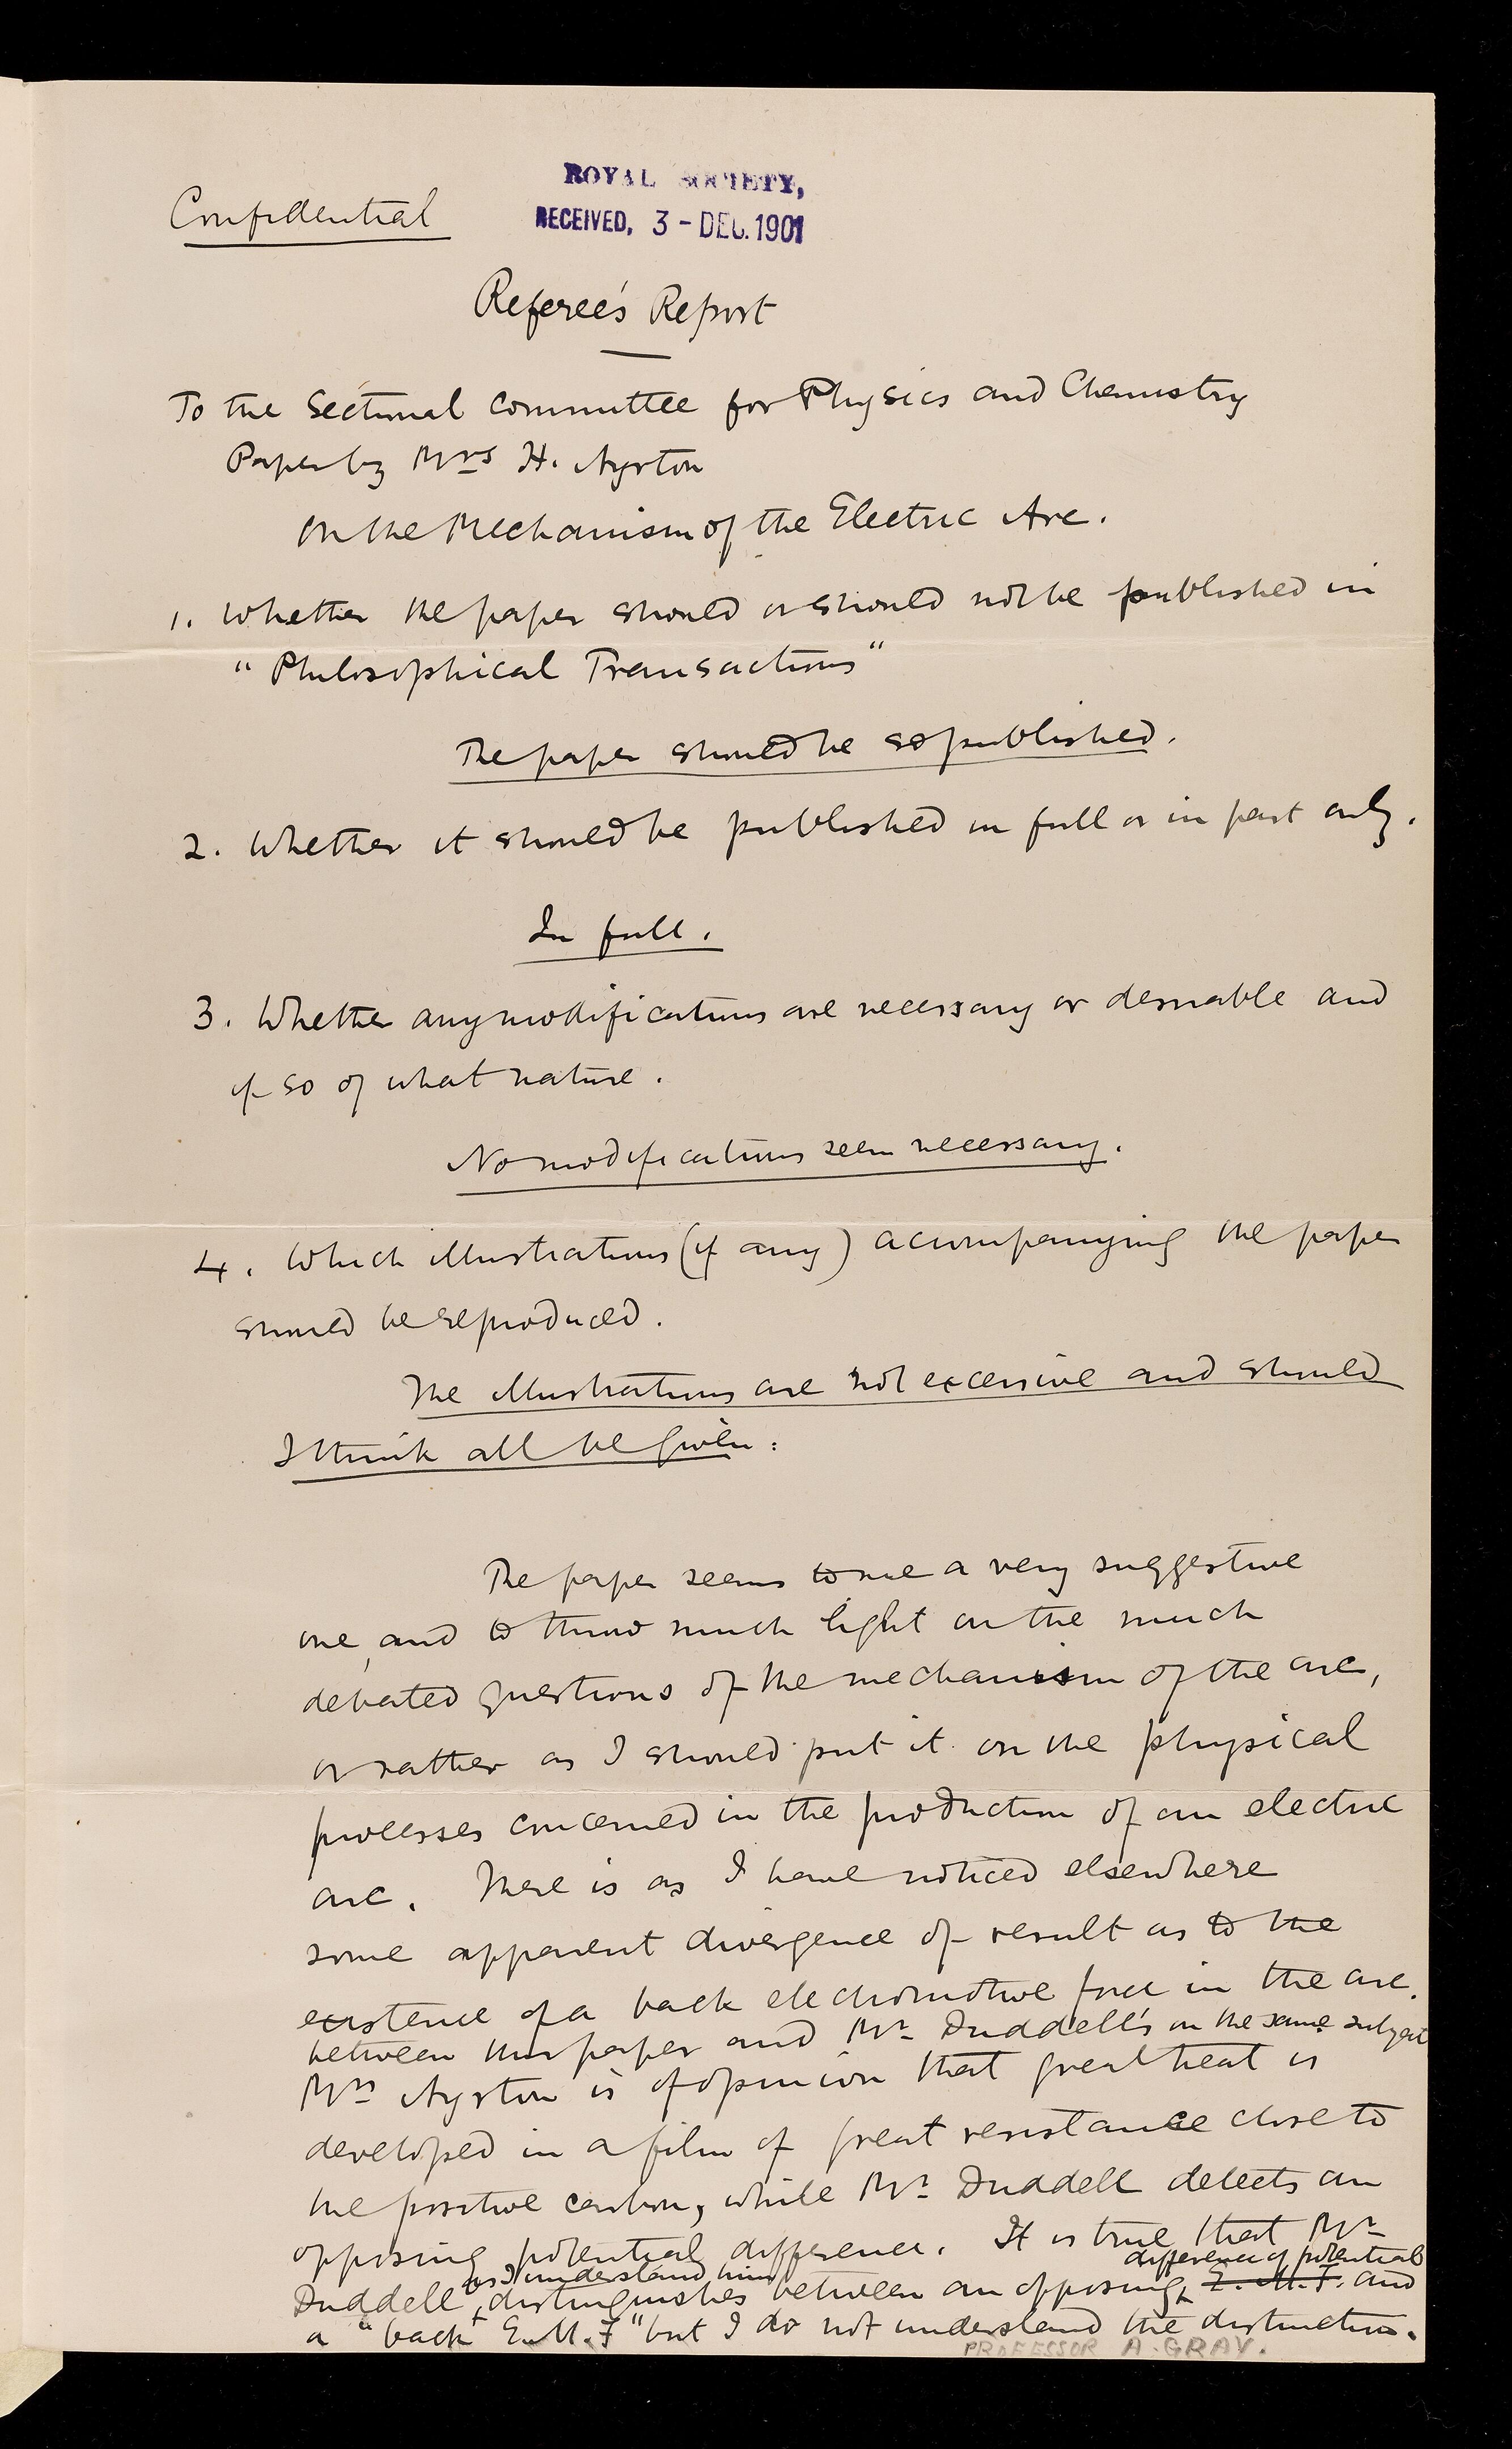 Confidential
ROYAL SOCIETY,
RECEIVED, 3 - DEC. 1901
Referee's Report
To the Sectional Committee for Physics and Chemistry
Paper by Mrs H. Ayrton
On the Mechanism of the Electric Arc.
1. Whether the paper should or should not be published in
"Philosophical Transactions"
The paper should be so published.
2. Whether it should be published in full or in part only.
In full.
3. Whether any modifications are necessary or desirable and
if so of what nature.
No modifications seem necessary.
4. Which illustrations (if any) accompanying the paper
should be reproduced.
The illustrations are not excessive and should
I think all be given.
The paper seems to me a very suggestive
one, and to throw much light on the much
debated questions of the mechanism of the arc,
or rather as I should put it on the physical
processes concerned in the production of an electric
arc. There is as I have noticed elsewhere
some apparent divergence of result as to the
existence of a back electromotive force in the arc.
between this paper and Mr Duddell's on the same subject
Mrs Ayrton is of opinion that great heat is
developed in a film of great resistance close to
the positive carbon, while Mr Duddell detects an
opposing potential difference. It is true that Mr
as I understand him difference of potential
Duddell, distinguishes between an opposing E.M.F. and
a "back E.M.F" but I do not understand the distinction.
PROFESSOR A. GRAY.